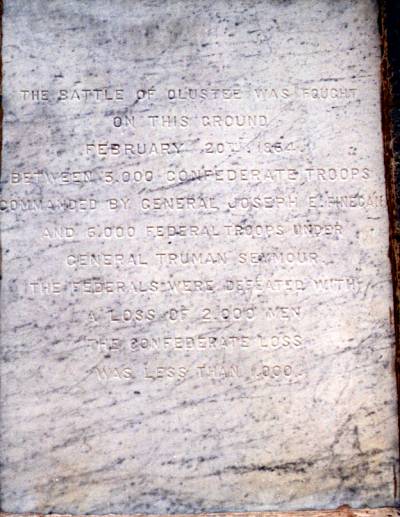 THE BATTLE OF OLUSTEE WAS FOUGHT
ON THIS GROUND
FEBRUARY 20TH, 1864
BETWEEN 5,000 CONFEDERATE TROOPS
COMMANDED BY GENERAL JOSEPH E. FINEGAN
AND 6,000 FEDERAL TROOPS UNDER
GENERAL TRUMAN SEYMOUR.
THE FEDERALS WERE DEFEATED WITH
A LOSS OF 2,000 MEN
THE CONFEDERATE LOSS
WAS LESS THAN 1,000.